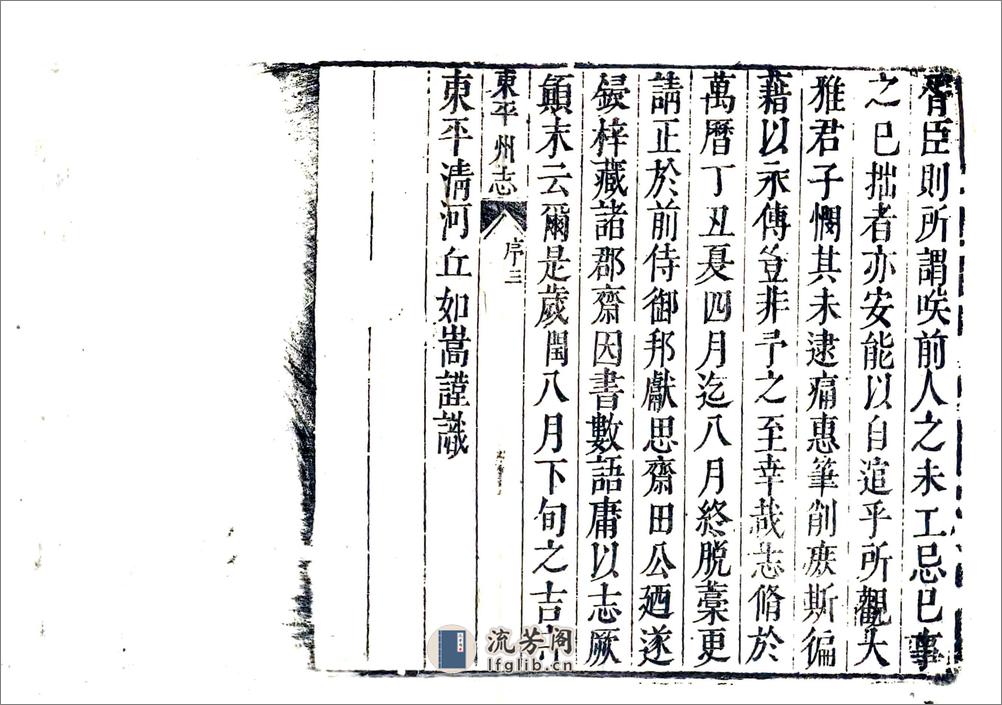 胥臣則所謂唉前人之未工忌已事
之已拙者亦安能以自逭乎所觀大
雅君子憫其未逮痛惠筆削庶斯徧
藉以永傳豈非予之至幸哉志脩於
萬曆丁丑夏四月迄八月終脫藁更
請正於前侍御邦獻思齋田公廼遂
鋟梓藏諸郡齋因書數語庸以志厥
顛末云爾是歲閏八月下旬之吉
東平州志
序三
東平清河丘如嵩謹識
流芳阁
lfglib.cn